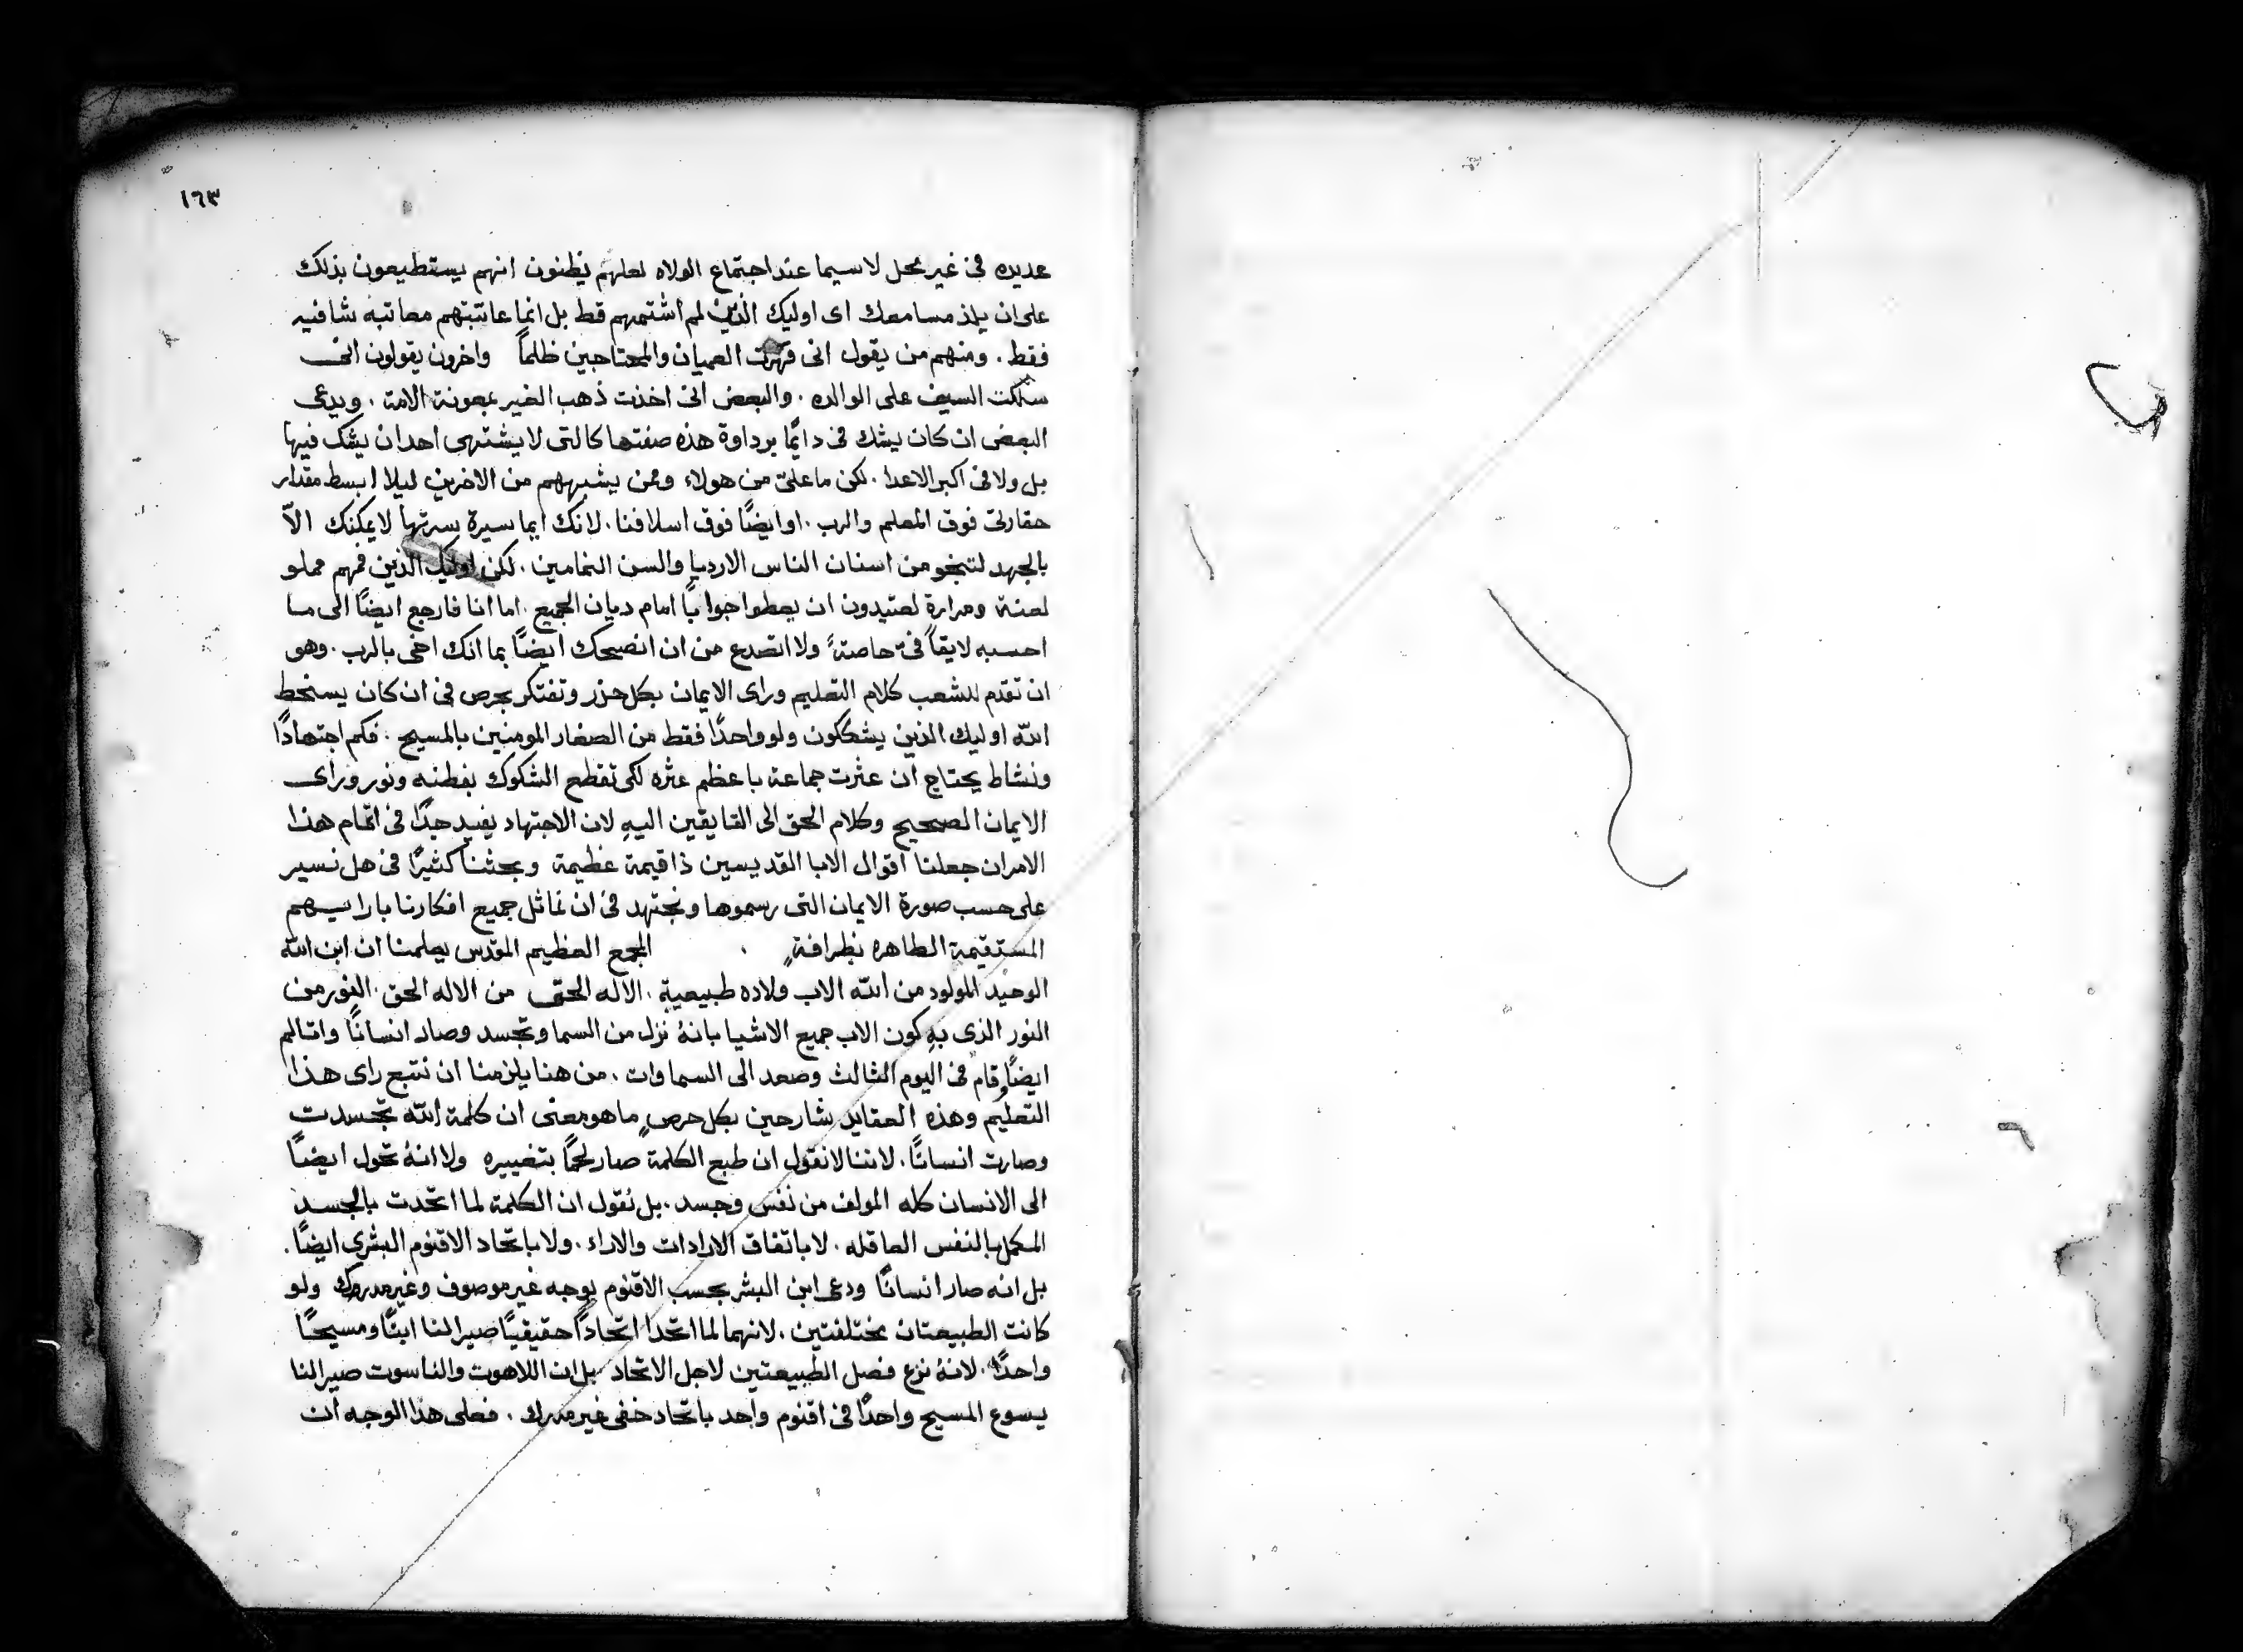 ١٦٣
عديده فى غير محل لاسيما عند اجتماع الولاه لعلهم يظنون انهم يستطيعون بذلك
على ان يلذ مسامعك اى اوليك الذين لم اشتمهم قط بل انما عاتبتهم معاتبه شافيه
فقط . ومنهم من يقول انى قهرت العميان والمحتاجين ظلماً واخرون يقولون انى
سلكت السيف على الوالده . والبعض انى اخذت ذهب الغير بمعونة الامة . ويدعى
البعض ان كان يشك فى دايًما برداوة هذه صفتها كالتى لا يشتهى احد ان يشك فيها
بل ولا فى اكبر الاعدا . لكن ما علىّ من هولاء وممن يشبههم من الاخرين ليلا ابسط مقدار
حقارتى فوق المعلم والرب . او ايضًا فوق اسلافنا . لانك ايما سيرة سرتها لا يمكنك الاّ
بالجهد لتنجو من اسنان الناس الارديا والسن النمامين . لكن اوليك الذين فمهم مملو
لعنة ومرارة لعتيدون ان يعطوا جوابًا امام ديان الجميع . اما انا فارجع ايضًا الى ما
احسبه لايقاً فىّ خاصةً ولا انصدع من ان انصحك ايضًا بما انك اخى بالرب . وهو
ان تقدم للشعب كلام التعليم وراى الايمان بكل حزر وتفتكر بحرص فى ان كان يسخط
الله اوليك الذين يشككون ولو واحدًا فقط من الصغار المومنين بالمسيح . فكم اجتهادًا
ونشاط يحتاج ان عثرت جماعة باعظم عثره لكى تقطع الشكوك بفطنه ونور وراى
الايمان الصحيح وكلام الحق الى التايقين اليهِ لان الاجتهاد يفيد جدًا فى اتمام هذا
الامر ان جعلنا اقوال الابا القديسين ذا قيمة عظيمة وبحثنا كثيرًا فى هل نسير
على حسب صورة الايمان التى رسموها ونجتهد فى ان نماثل جميع افكارنا باراييهم
المستقيمة الطاهره بظرافةٍ . المجمع العظيم المقدس يعلمنا ان ابن الله
الوحيد المولود من الله الاب ولاده طبيعيةٍ . الاله الحق من الاله الحق . النور من
النور الذى بهِ كون الاب جميع الاشيا بانهُ نزل من السما وتجسد وصار انسانًا واتالم
ايضًا وقام فى اليوم الثالث وصعد الى السماوات . من هنا يلزمنا ان نتبع راى هذا
التعليم وهذه العقايد شارحين بكل حرصٍ ما هو معنى ان كلمة الله تجسدت
وصارت انسانًا . لاننا لا نقول ان طبع الكلمة صار لحمًا بتغييره ولا انهُ تحول ايضًا
الى الانسان كله المولف من نفس وجسد . بل نقول ان الكلمة لما اتحدت بالجسد
المكمل بالنفس العاقله . لا باتفاق الارادات والاراء . ولا باتحاد الاقنوم البشرى ايضًا .
بل انه صار انسانًا ودعى ابن البشر بحسب الاقنوم بوجه غير موصوف وغير مدروك ولو
كانت الطبيعتان مختلفتين . لانهما لما اتحدا اتحاداً حقيقيًا صيرا لنا ابنًا ومسيحًا
واحدًا . لانهُ نزع فصل الطبيعتين لاجل الاتحاد بل ان اللاهوت والناسوت صيرا لنا
يسوع المسيح واحدًا فى اقنوم واحد باتحاد خفى غير مدرك . فعلى هذا الوجه ان